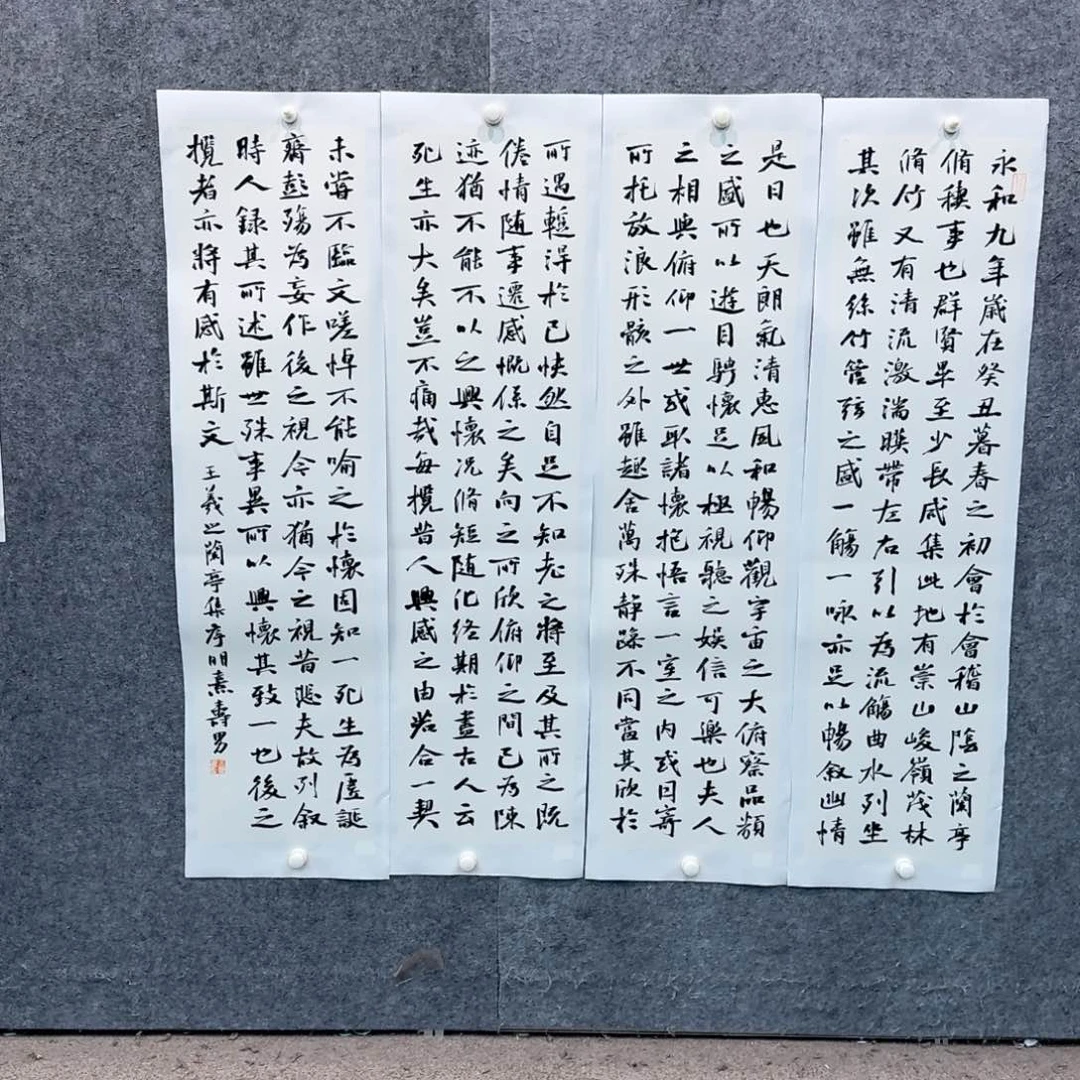 永和九年歲在癸丑暮春之初會於會稽山陰之蘭亭
脩稧事也群賢畢至少長咸集此地有崇山峻嶺茂林
脩竹又有清流激湍暎帶左右引以為流觴曲水列坐
其次雖無絲竹管弦之盛一觴一咏亦足以暢敘幽情
是日也天朗氣清惠風和暢仰觀宇宙之大俯察品類
之盛所以遊目騁懷足以極視聽之娛信可樂也夫人
之相與俯仰一世或取諸懷抱悟言一室之内或因寄
所托放浪形骸之外雖趣舍萬殊静躁不同當其欣於
所遇蹔得於己快然自足不知老之將至及其所之既
倦情随事遷感慨係之矣向之所欣俯仰之間已為陳
迹猶不能不以之興懷况脩短随化終期於盡古人云
死生亦大矣豈不痛哉每攬昔人興感之由若合一契
未嘗不臨文嗟悼不能喻之於懷固知一死生為虛誕
齊彭殤為妄作後之視今亦猶今之視昔悲夫故列叙
時人録其所述雖世殊事異所以興懷其致一也後之
攬者亦將有感於斯文 王羲之蘭亭集序明熹壽男